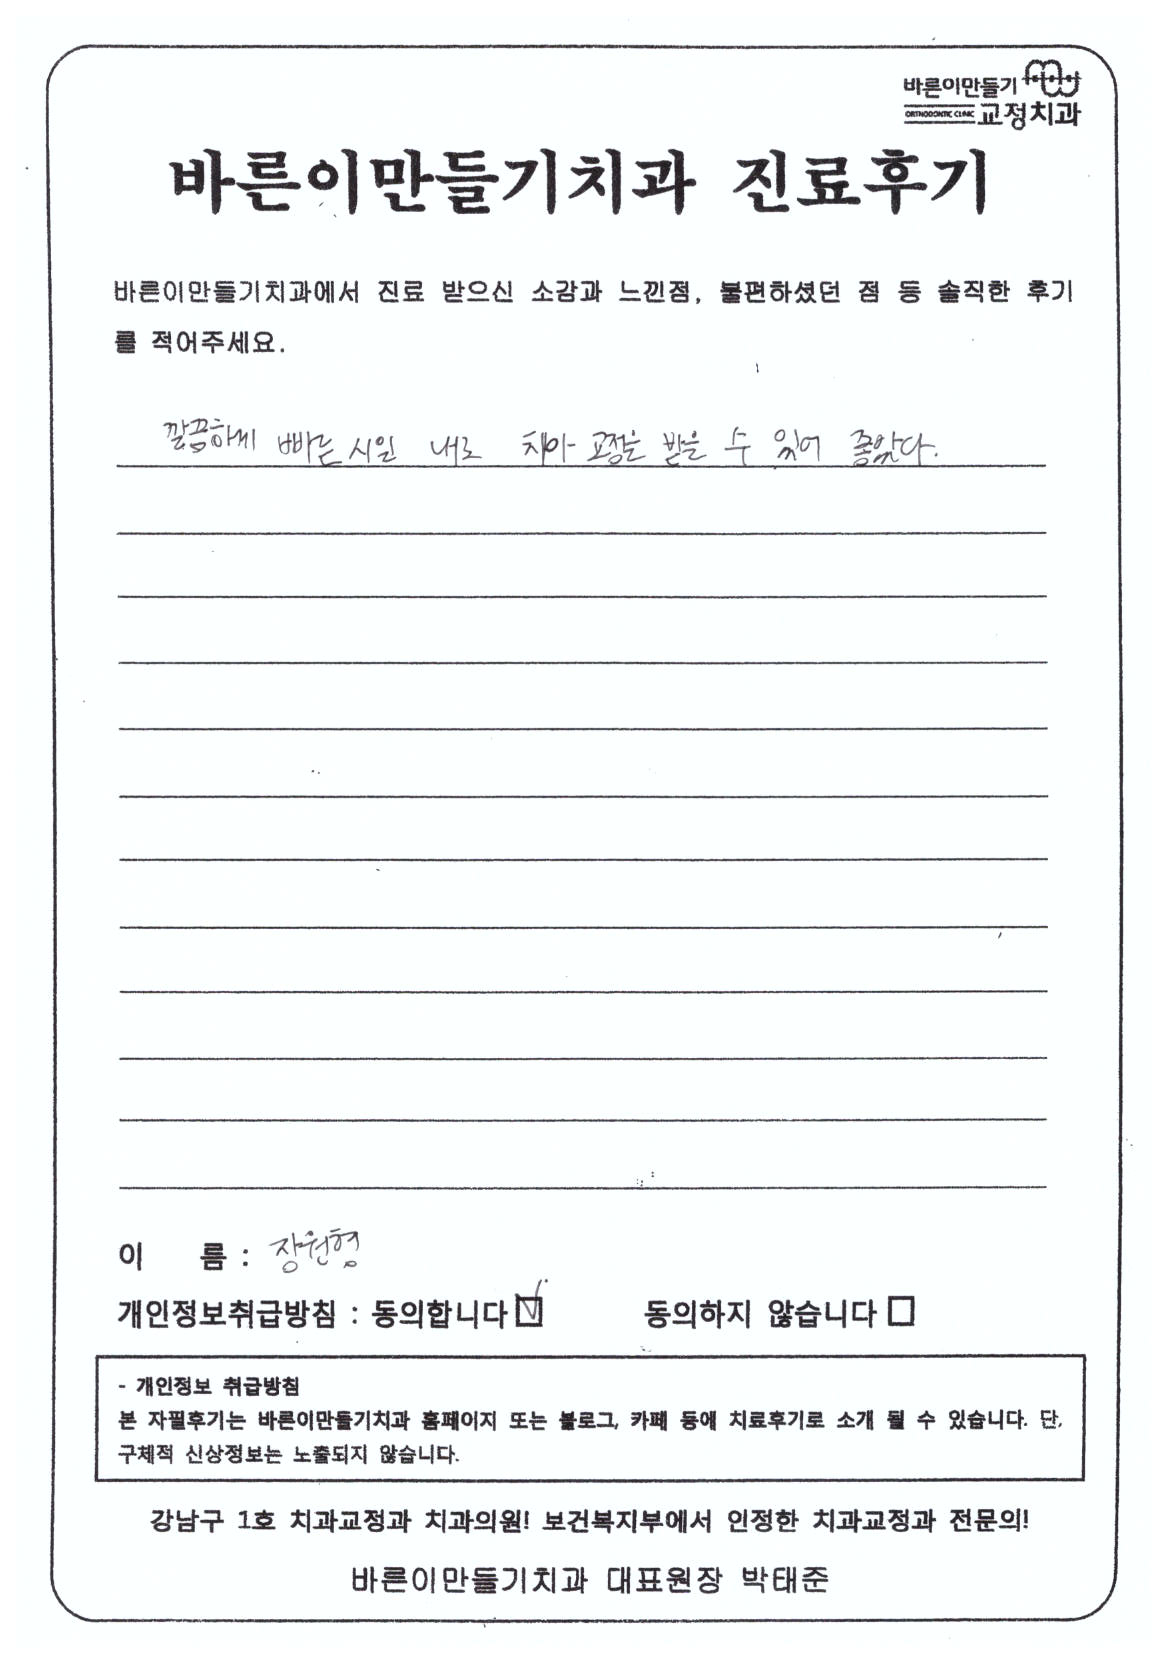 바른이만들기
ORTHODONTIC CLINIC 교정치과
바른이만들기치과 진료후기
바른이만들기치과에서 진료 받으신 소감과 느낀점, 불편하셨던 점 등 솔직한 후기
를 적어주세요.
깔끔하게 빠른 시일 내로 치아 교정을 받을 수 있어 좋았다.
이 름 : 장원형
개인정보취급방침 : 동의합니다 ☑ 동의하지 않습니다 ☐
- 개인정보 취급방침
본 자필후기는 바른이만들기치과 홈페이지 또는 블로그, 카페 등에 치료후기로 소개 될 수 있습니다. 단,
구체적 신상정보는 노출되지 않습니다.
강남구 1호 치과교정과 치과의원! 보건복지부에서 인정한 치과교정과 전문의!
바른이만들기치과 대표원장 박태준